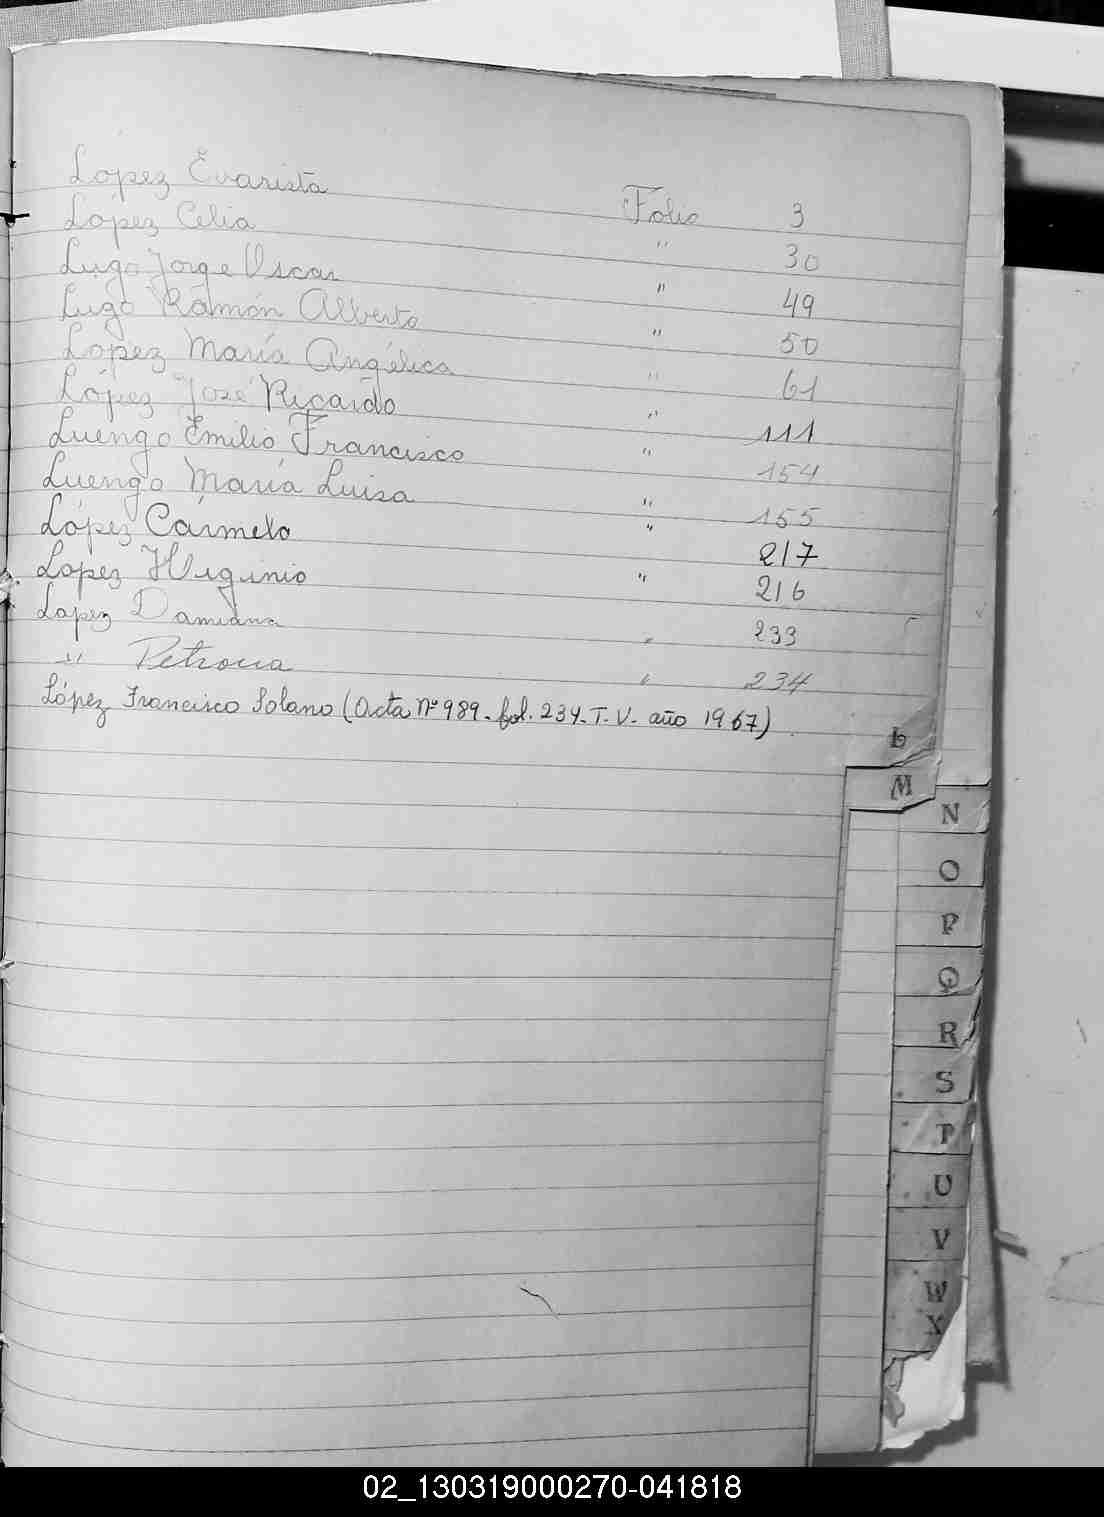 López Evarista Folio 3
López Celia " 30
Lugo Jorge Oscar " 49
Lugo Ramón Alberto " 50
López María Angélica " 61
López José Ricardo " 111
Luengo Emilio Francisco " 154
Luengo María Luisa " 155
López Carmelo " 217
Lopez Higinio " 216
Lopez Damiana " 233
" Petrona " 234
López Francisco Solano (Acta Nº 989. fol. 234. T. V. año 1967)
L
M
N
O
P
Q
R
S
T
U
V
W
X
02_130319000270-041818